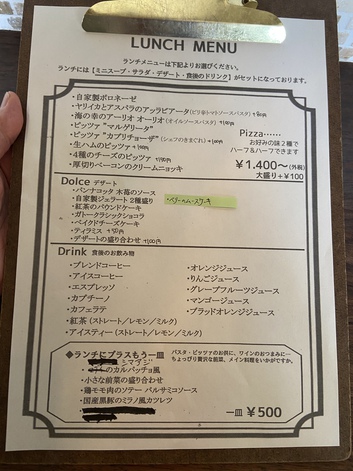 LUNCH MENU
ランチメニューは下記よりお選びください。
ランチには【ミニスープ・サラダ・デザート・食後のドリンク】がセットになっております。
・自家製ボロネーゼ
・ヤリイカとアスパラのアッラビアータ(ピリ辛トマトソースパスタ)
・海の幸のアーリオ オーリオ(オイルソースパスタ) +100円
・ピッツァ "マルゲリータ"
・ピッツァ "カプリチョーザ"(シェフのきまぐれ) +100円
・生ハムのピッツァ
・4種のチーズのピッツァ
・厚切りベーコンのクリームニョッキ
Pizza……
お好みの味2種で
ハーフ&ハーフできます
¥1,400〜(外税)
大盛り+¥100
Dolce デザート
・パンナコッタ 木苺のソース
・自家製ジェラート2種盛り
・紅茶のパウンドケーキ
・ガトークラシックショコラ
・ベイクドチーズケーキ
・ティラミス
・デザートの盛り合わせ
Drink 食後のお飲み物
・ブレンドコーヒー
・アイスコーヒー
・エスプレッソ
・カプチーノ
・カフェラテ
・紅茶(ストレート/レモン/ミルク)
・アイスティー(ストレート/レモン/ミルク)
・オレンジジュース
・りんごジュース
・グレープフルーツジュース
・マンゴージュース
・ブラッドオレンジジュース
◆ランチにプラスもう一皿
パスタ・ピッツァのお供に、ワインのおつまみに…
ちょっぴり贅沢な前菜、メイン料理をいかがですか。
シマアジ
のカルパッチョ風
・小さな前菜の盛り合わせ
・鶏モモ肉のソテー バルサミコソース
・国産黒豚のミラノ風カツレツ
一皿 ¥500